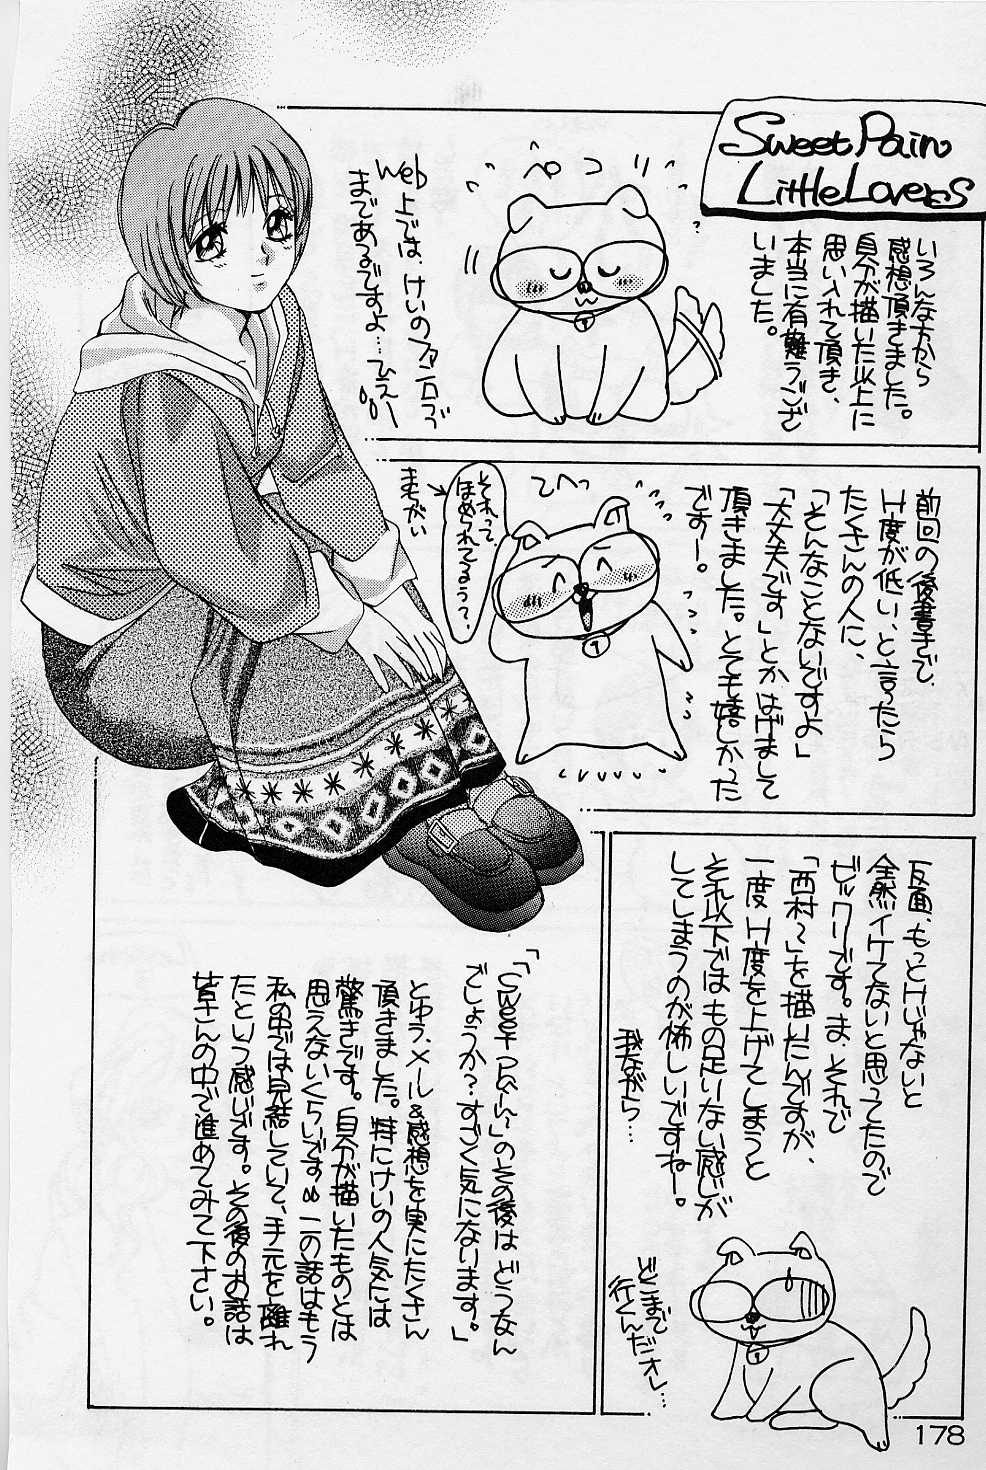 Sweet Pain
Little Lovers
いろんな方から
感想頂きました。
自分が描いた以上に
思い入れて頂き、
本当に有難うござ
いました。
ペコリ
Web上では、けいのファン石づ
まであるですよ…ひえー
前回の後書きで、
H度が低い、と言ったら
たくさんの人に、
「そんなことないですよ」
「大丈夫です」とかはげまして
頂きました。とても嬉しかった
でーす。
てへっ
それって、
ほめられてるぅ?
まちがい
反面、もっとHじゃないと
全然イケてないと思ってたので
ビックリです。ま、それで
「西村〜」を描いたんですが、
一度H度を上げてしまうと
それ以下ではもの足りない感じが
してしまうのが怖しいですねー。
我ながら…
どこまで
行くんだオレ…
「「Sweet Pain〜」のその後はどうなん
でしょうか?すごく気になります。」
とゆう、メール&感想を実にたくさん
頂きました。特にけいの人気には
驚きです。自分が描いたものとは
思えないくらいです。この話はもう
私の中では完結していて、手元を離れ
たという感じです。その後のお話は
皆さんの中で進めてみて下さい。
178